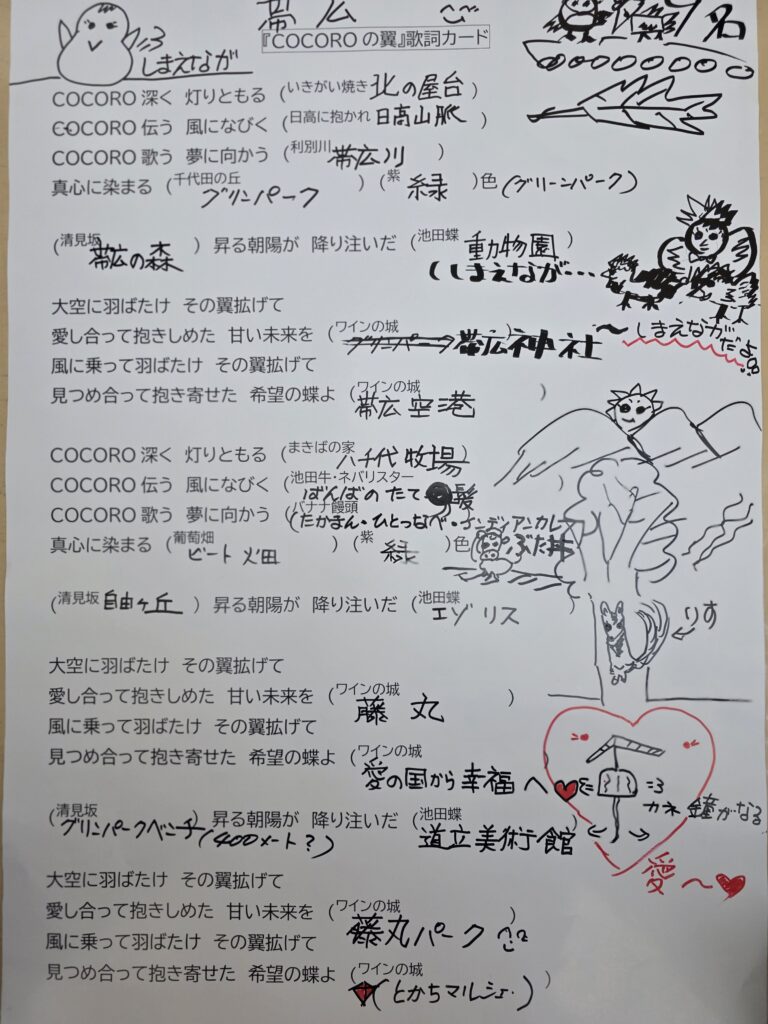 帯広
『COCOROの翼』歌詞カード
しまえなが
COCORO 深く 灯りともる (いきがい焼き 北の屋台)
COCORO 伝う 風になびく (日高に抱かれ 日高山脈)
COCORO 歌う 夢に向かう (利別川 帯広川)
真心に染まる (千代田の丘 グリンパーク) (紫 緑)色 (グリーンパーク)
(清見坂 帯広の森) 昇る朝陽が 降り注いだ (池田蝶 動物園)
(しまえなが・・・
大空に羽ばたけ その翼拡げて
愛し合って抱きしめた 甘い未来を (ワインの城 グリンパーク 帯広神社)
〜しまえながだよ
風に乗って羽ばたけ その翼拡げて
見つめ合って抱き寄せた 希望の蝶よ (ワインの城 帯広空港)
COCORO 深く 灯りともる (まきばの家 八千代牧場)
COCORO 伝う 風になびく (池田牛・ネバリスター ばんばのたて髪
COCORO 歌う 夢に向かう (バナナ饅頭 (たかまん・ひとつなべ・インディアンカレー
真心に染まる (葡萄畑 ビート畑) (紫 緑)色 (ぶた丼
(清見坂 自由ヶ丘) 昇る朝陽が 降り注いだ (池田蝶 エゾリス)
りす
大空に羽ばたけ その翼拡げて
愛し合って抱きしめた 甘い未来を (ワインの城 藤丸)
風に乗って羽ばたけ その翼拡げて
見つめ合って抱き寄せた 希望の蝶よ (ワインの城 愛の国から幸福へ
カネ 鐘がなる
(清見坂 グリンパークベンチ (400メート?) 昇る朝陽が 降り注いだ (池田蝶 道立美術館)
愛〜
大空に羽ばたけ その翼拡げて
愛し合って抱きしめた 甘い未来を (ワインの城 藤丸パーク)
風に乗って羽ばたけ その翼拡げて
見つめ合って抱き寄せた 希望の蝶よ (ワインの城 (とかちマルシェ・))